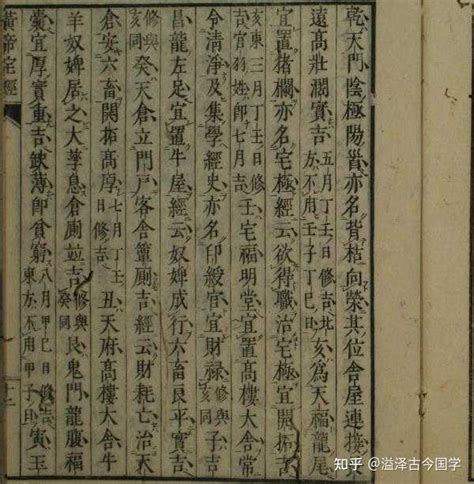 乾天門陰極陽首亦名背枯向榮其位舍屋連接
遠高壯濶實吉五月丁壬日修吉北方不用壬子丁巳日亥為天福龍尾
宜置猪欄亦名宅極經云欲得職治宅極宜開拓吉
亥東三月丁壬日修吉宫羽姓即七月吉壬宅福明堂宜置高樓大舍
令清淨及集學經史亦名印綬宜財祿修與亥同子吉
昌龍左足宜置牛屋經云奴婢成行六畜良平實吉
修與亥同癸天倉立門戶客舍簟厠吉經云財耗亡治天
倉安六畜開拓高厚七月丁壬日修吉丑天府高樓大舍牛
羊奴婢居之大孳息倉厠並吉修與癸同艮鬼門龍腹福
囊宜厚實重吉缺薄即貧窮八月甲巳日修吉東方不用甲子日寅玉
黃帝宅經
十二
知乎 @溢泽古今国学